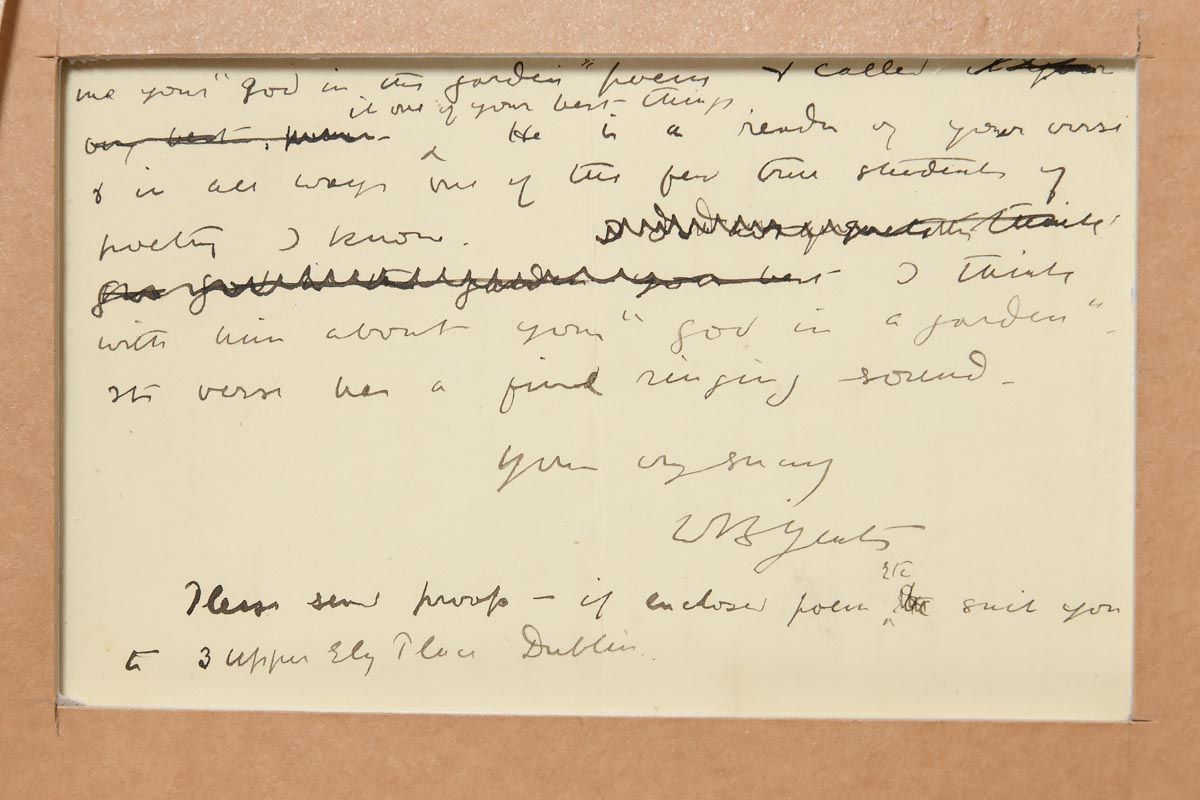 me your "god in the garden" poem & called
it one of your best things.
my best poem. He is a reader of your verse
& in all ways one of the few true students of
poetry I know.
god in the garden your best I think
with him about your "god in a garden".
Its verse has a fine ringing sound –
Yours very sincely
WB Yeats
etc
Please send proofs – if enclosed poem suit you
to 3 Upper Ely Place Dublin.